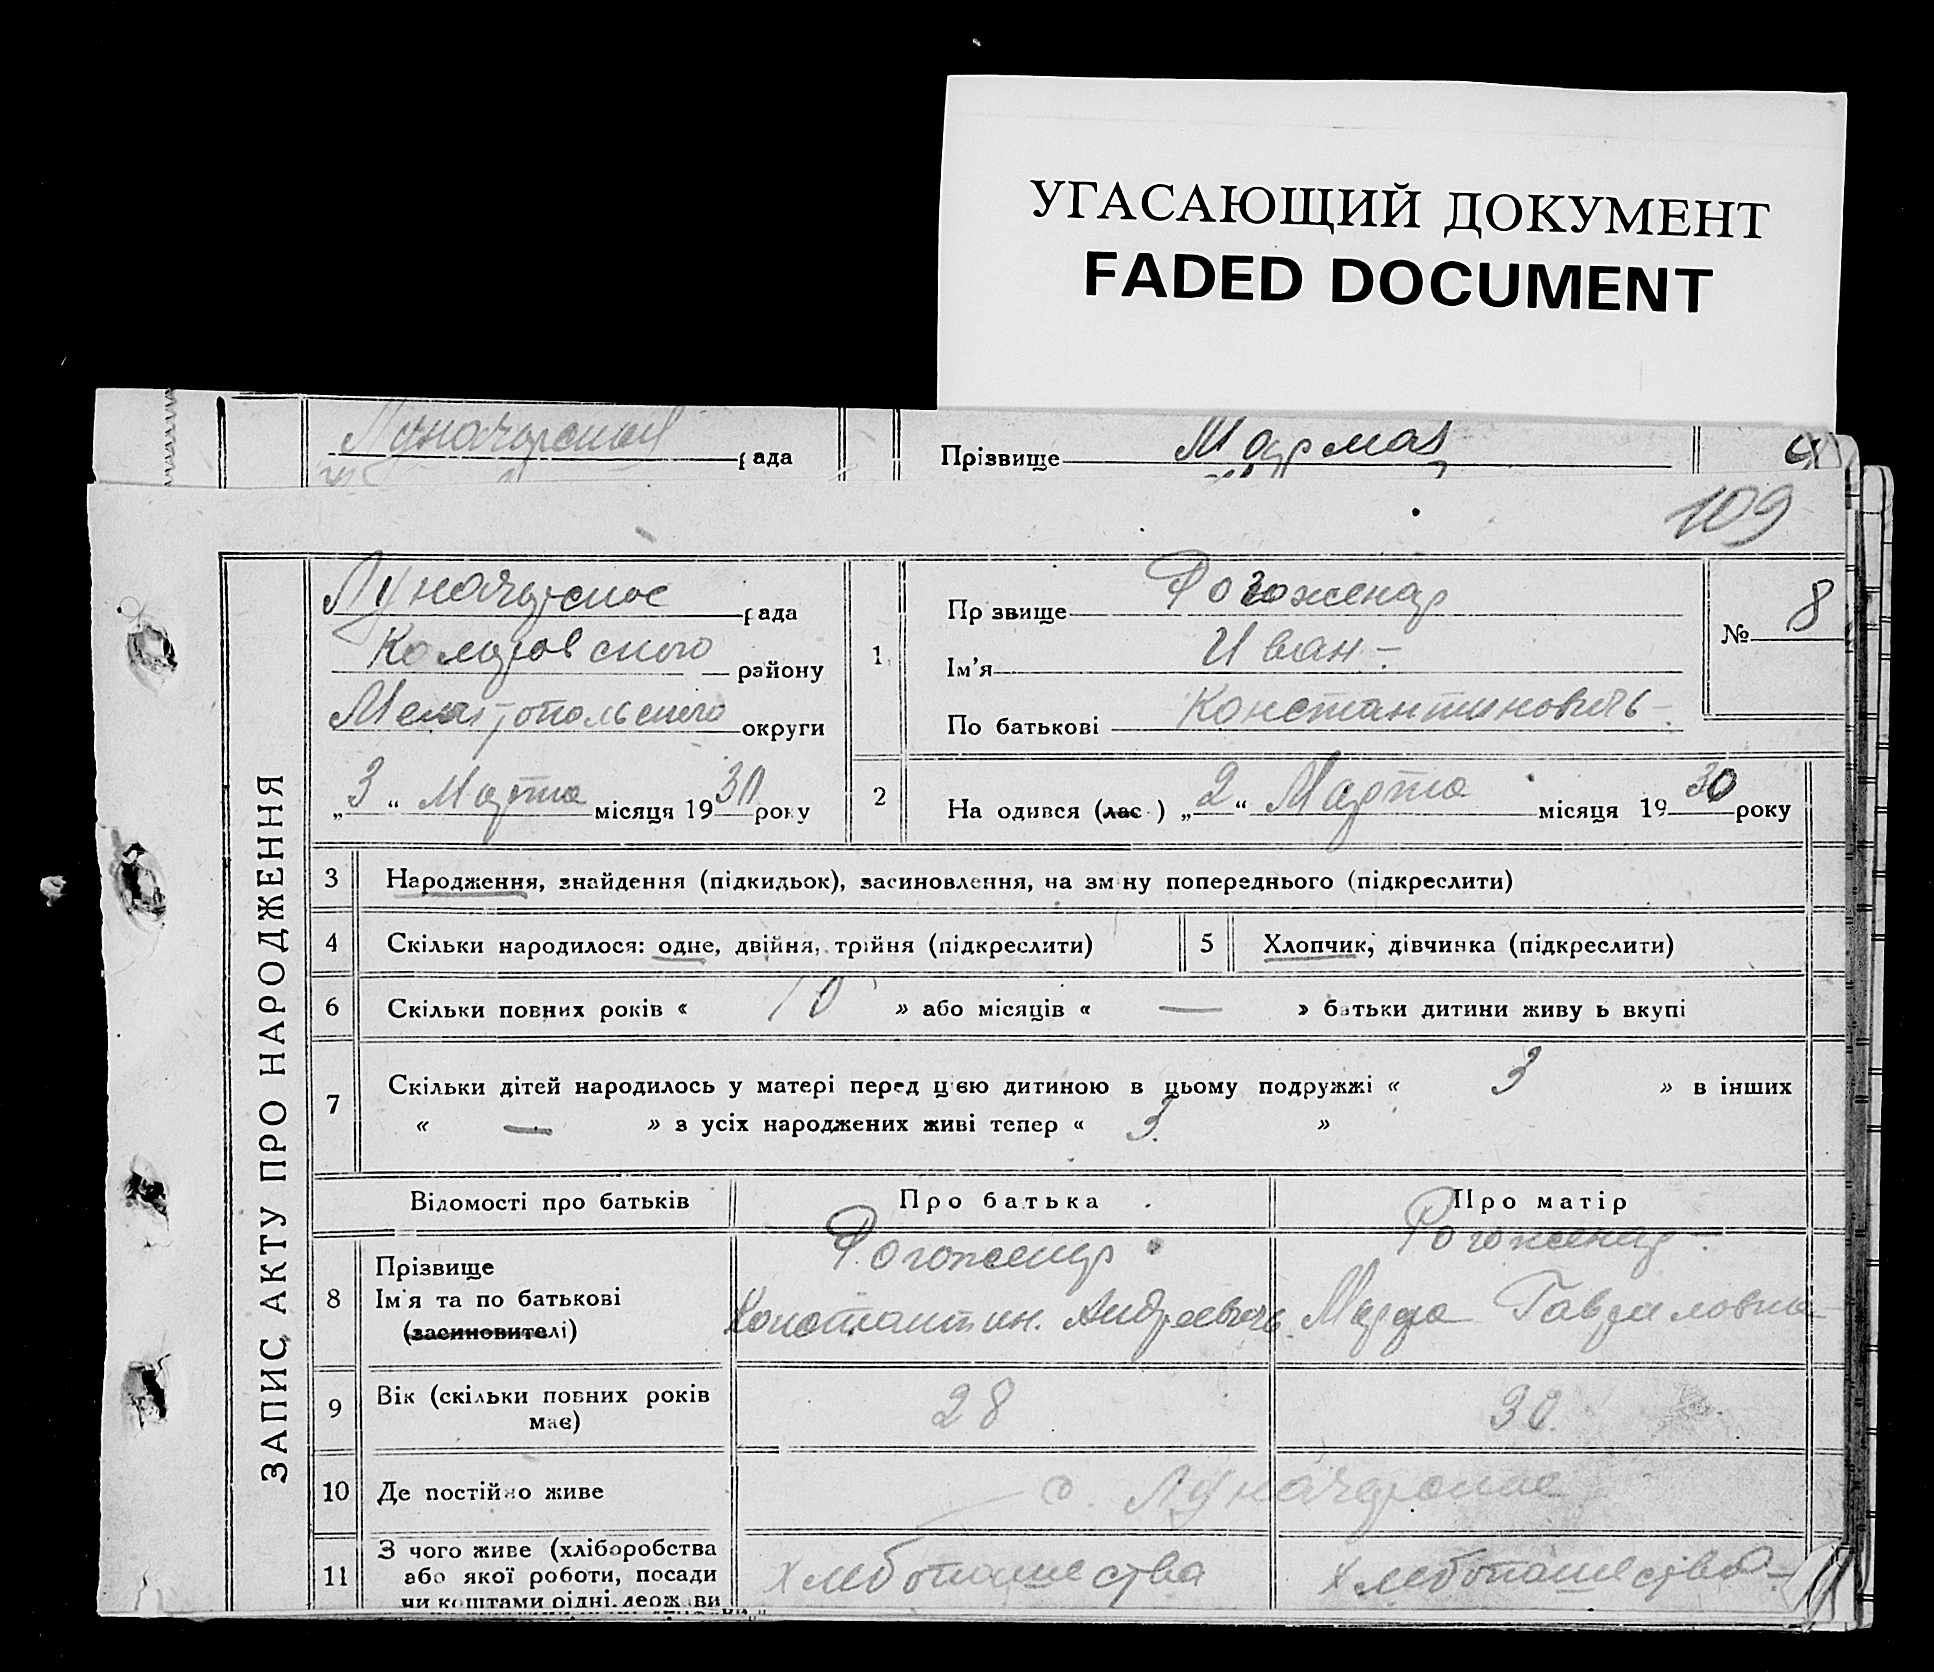 УГАСАЮЩИЙ ДОКУМЕНТ
FADED DOCUMENT
рада
Прізвище
109
ЗАПИС АКТУ ПРО НАРОДЖЕННЯ
Луначарское рада
району
Мелитопольского округи
„3“ Марта місяця 1930 року
1
Пр звище Рогоженар
Ім'я Иван -
По батькові Константиновичь -
№ 8
2 На одився (лас ) „2“ Марта місяця 1930 року
3 Народження, знайдення (підкидьок), засиновлення, на зм ну попереднього (підкреслити)
4 Скільки народилося: одне, двійня, трійня (підкреслити)
5 Хлопчик, дівчинка (підкреслити)
6 Скільки повних років « 10 » або місяців « — » батьки дитини живу ь вкупі
7 Скільки дітей народилось у матері перед цією дитиною в цьому подружжі « 3 » в інших
« — » з усіх народжених живі тепер « 3. »
Відомості про батьків Про батька Про матір
8 Прізвище
Ім'я та по батькові
(засиновителі)
Рогоженар
Константин. Андреевичь
Рогоженар -
Марфа Гавриловна -
9 Вік (скільки повних років
має)
28 30.
10 Де постійно живе с. Луначарское
11 З чого живе (хліборобства
або якої роботи, посади
чи коштами рідні, держ ви
хлебопашества хлебопашества -